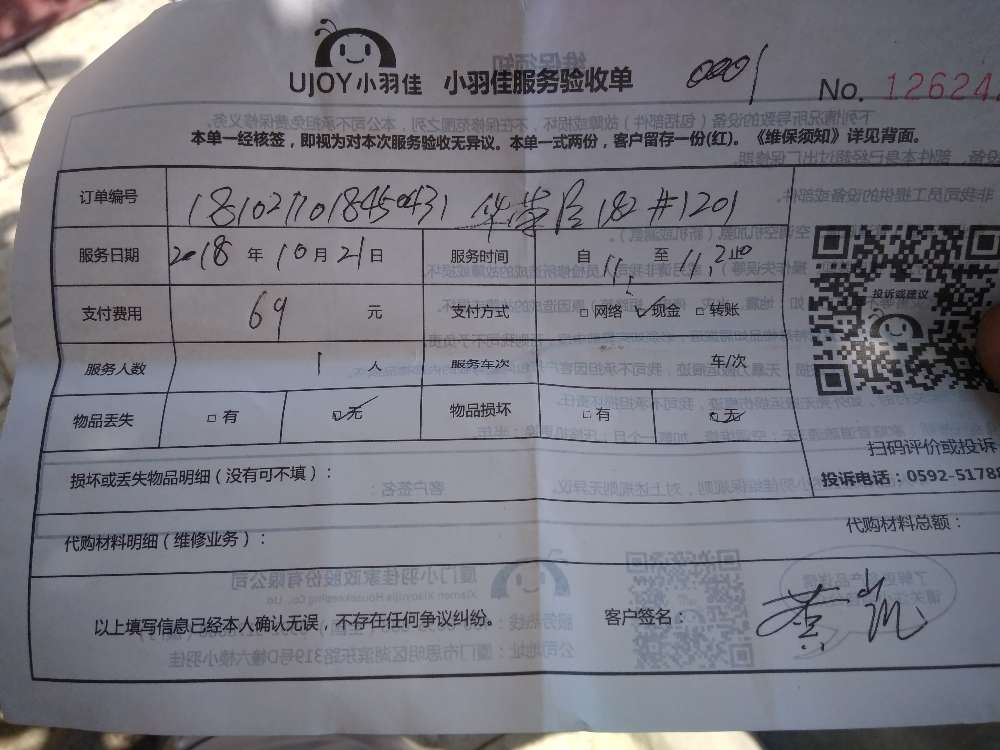 UJOY小羽佳 小羽佳服务验收单 0001 No. 12624
本单一经核签，即视为对本次服务验收无异议。本单一式两份，客户留存一份(红)。《维保须知》详见背面。
订单编号 1810211018450431 华荣 182#1201
服务日期 2018 年 10 月 21 日 服务时间 自 11: 至 11,2 止
支付费用 69 元 支付方式 □网络 ☑现金 □转账
投诉或建议
服务人数 1 人 服务车次 车/次
物品丢失 □有 ☑无 物品损坏 □有 ☑无
扫码评价或投诉
损坏或丢失物品明细（没有可不填）：
投诉电话：0592-5178
代购材料明细（维修业务）：
代购材料总额：
以上填写信息已经本人确认无误，不存在任何争议纠纷。
客户签名： 黄凯